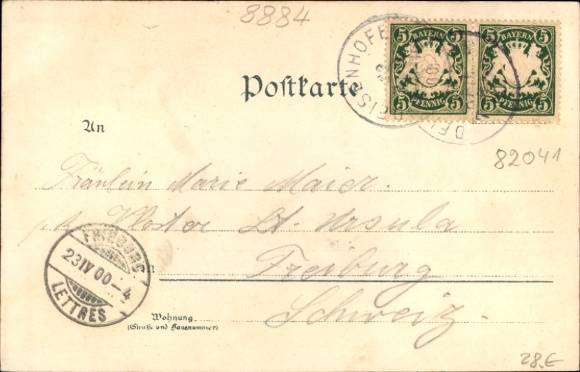 8884
5 BAYERN 5
5 PFENNIG 5
5 BAYERN 5
5 PFENNIG 5
DEISENHOFEN
Postkarte
An
82041
Fräulein Marie Maier.
Kloster St. Ursula
Freiburg
Schweiz.
FRIBOURG
23 IV 00-4
LETTRES
Wohnung
(Straße und Hausnummer)
28.€